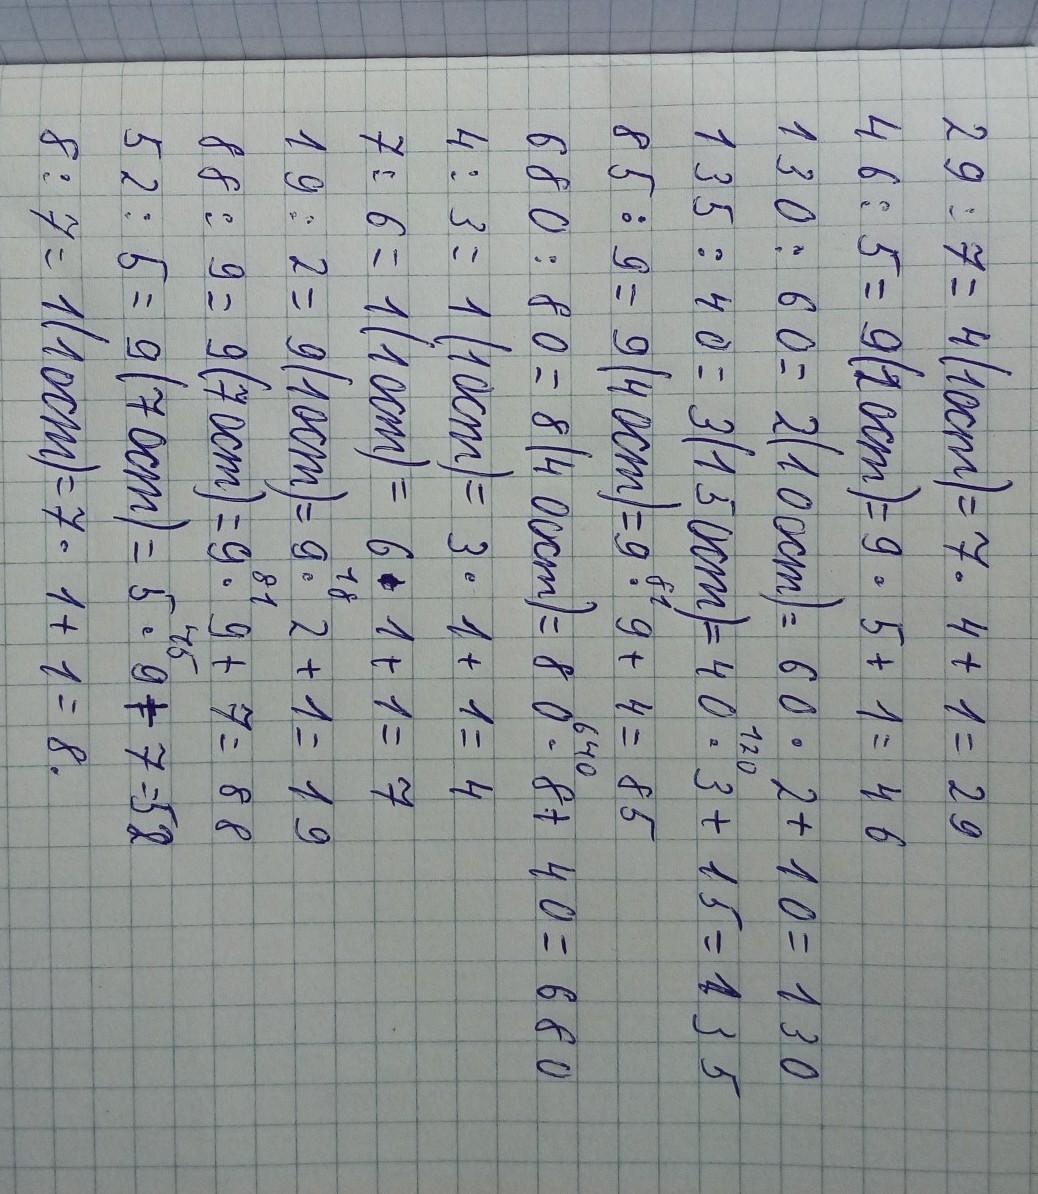 29:7=4(1ост)=7·4+1=29
46:5=9(1ост)=9·5+1=46
130:60=2(10ост)=60·2+10=130
135:40=3(15ост)=40·3+15=135
120
85:9=9(4ост)=9·9+4=85
81
680:80=8(40ост)=80·8+40=680
640
4:3=1(1ост)=3·1+1=4
7:6=1(1ост)=6·1+1=7
19:2=9(1ост)=9·2+1=19
18
88:9=9(7ост)=9·9+7=88
81
52:5=9(7ост)=5·9+7=52
45
8:7=1(1ост)=7·1+1=8.